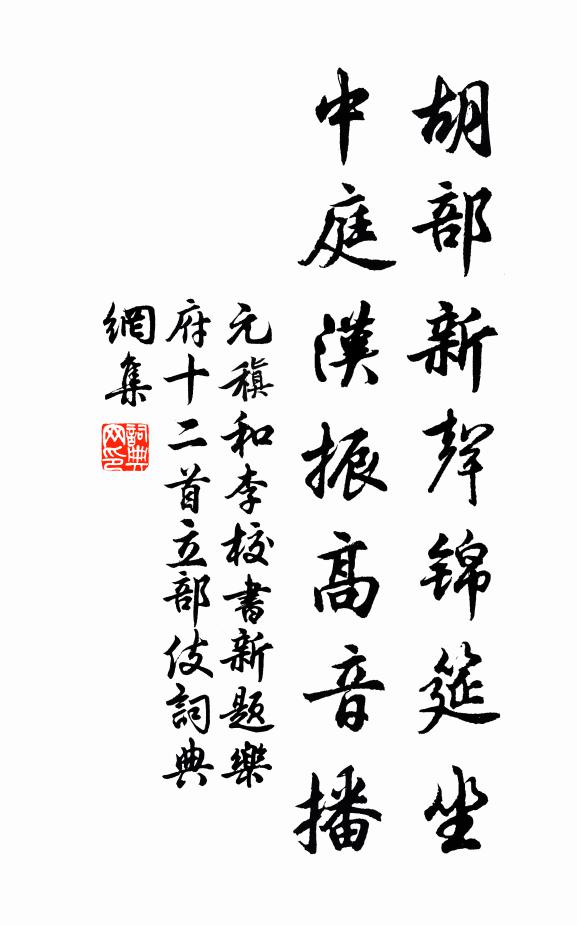 胡部新聲錦筵坐
中庭漢振高音播
元稹和李校書新題樂
府十二首立部伎詞典
網集
詞典網印